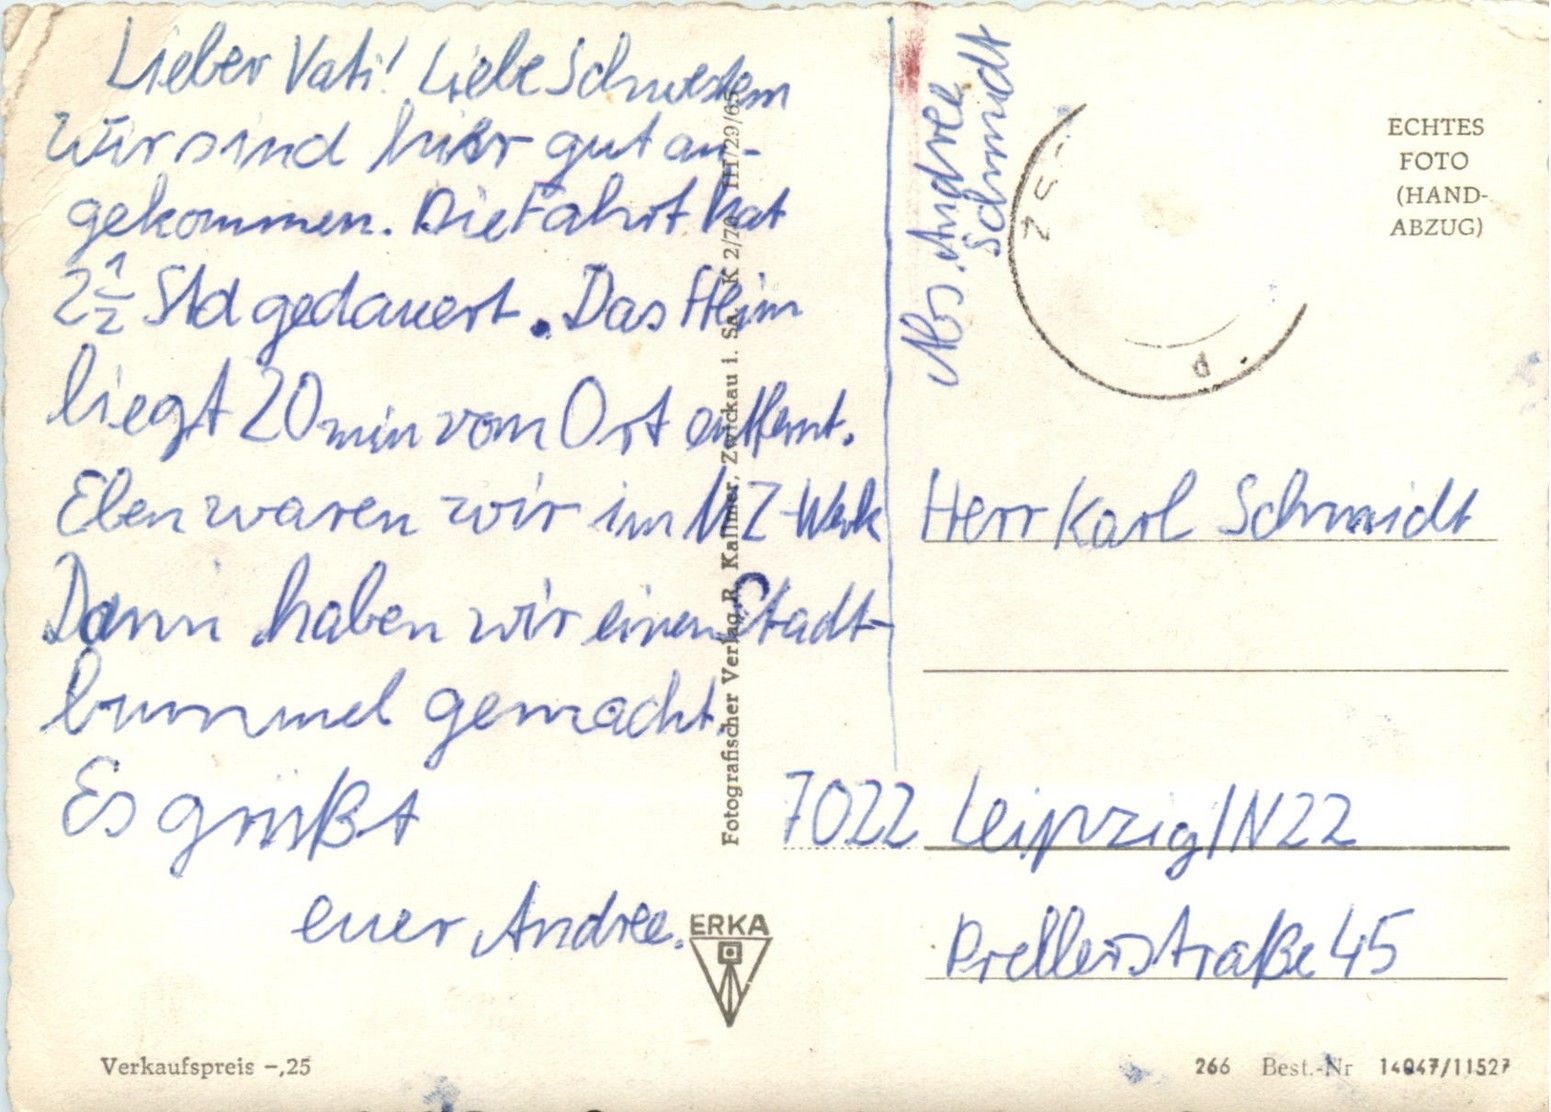 Lieber Vati! Liebe Schwestern
Wir sind hier gut an-
gekommen. Die Fahrt hat
2 1/2 Std gedauert. Das Heim
liegt 20 min vom Ort entfernt.
Eben waren wir im MZ-Werk
Dann haben wir einen Stadt-
bummel gemacht.
Es grüßt
euer Andree.
Verkaufspreis -,25
Fotografischer Verlag R. Kallmer, Zwickau i. Sa. K 2/70 III/29/65
ERKA
Abs. Andree
Schmidt
ECHTES
FOTO
(HAND-
ABZUG)
Herr Karl Schmidt
7022 Leipzig/N22
Prellerstraße 45
266 Best.-Nr 14047/11527